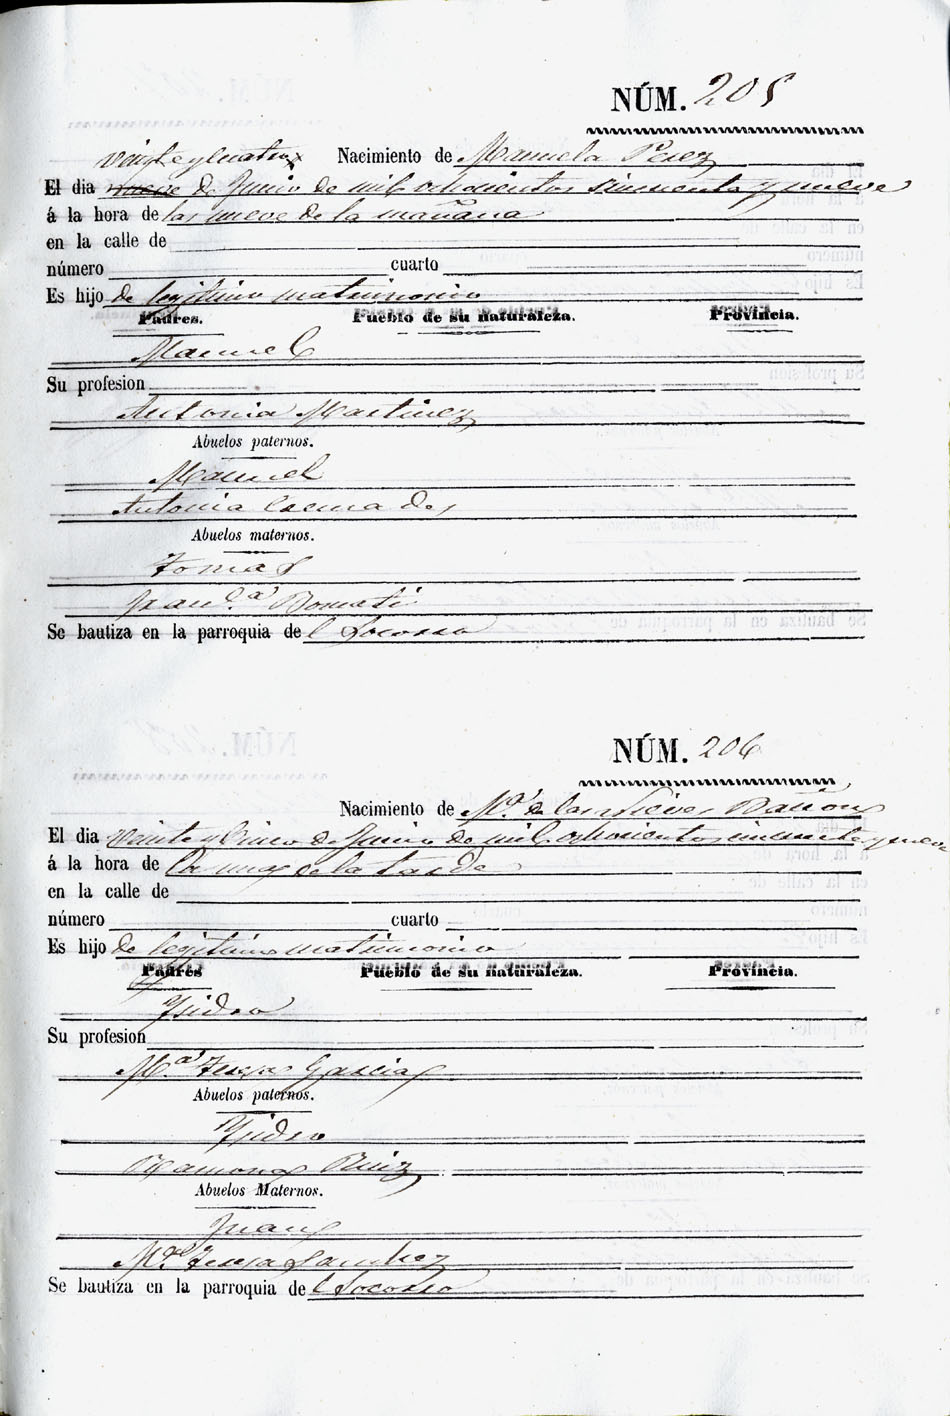 NÚM. 205
Nacimiento de Manuela Perez
veinte y cuatro
El dia nueve de Junio de mil ochocientos cincuenta y nueve
á la hora de las nueve de la mañana
en la calle de
número cuarto
Es hijo de legitimo matrimonio
Padres. Pueblo de su naturaleza. Provincia.
Manuel
Su profesion
Antonia Martinez
Abuelos paternos.
Manuel
Antonia
Abuelos maternos.
Tomas
Fran.ca
Se bautiza en la parroquia del Socorro
NÚM. 206
Nacimiento de M.ª de las Nieves Bañon
El dia veinte y cinco de Junio de mil ochocientos cincuenta y nueve
á la hora de la una de la tarde
en la calle de
número cuarto
Es hijo de legitimo matrimonio
Padres Pueblo de su naturaleza. Provincia.
Ysidro
Su profesion
M.ª Teresa Garcia
Abuelos paternos.
Ysidro
Ramona Ruiz
Abuelos Maternos.
Juan
M.ª Teresa Sanchez
Se bautiza en la parroquia del Socorro